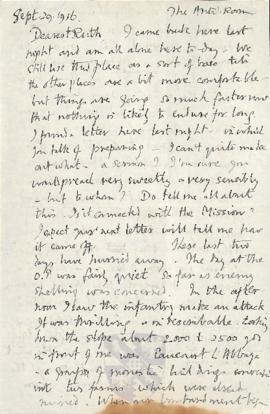 Sept 29. 1916. The Ante-Room
Dearest Ruth I came back here last
night and am all alone here to-day. We
still use this place as a sort of base till
the other places are a bit more comfortable -
but things are going so much faster now
that nothing is likely to endure for long.
I found a letter here last night - in which
you talk of preparing - I can't quite make
out what - a sermon? I'm sure you
would preach very sweetly & very sensibly
- but to whom? Do tell me all about
this. Is it connected with the Mission?
I expect your next letter will tell me how
it came off. These last two
days have hurried away. The day at the
O.P. was fairly quiet so far as enemy
shelling was concerned. In the after
noon I saw the infantry make an attack
It was thrilling & indescribable. Looking
down the slope about 2000 to 2500 yds
in front of me was Eaucourt L'Abbaye
- a group of monastic buildings converted
into farms which were already
ruined. When our bombardment